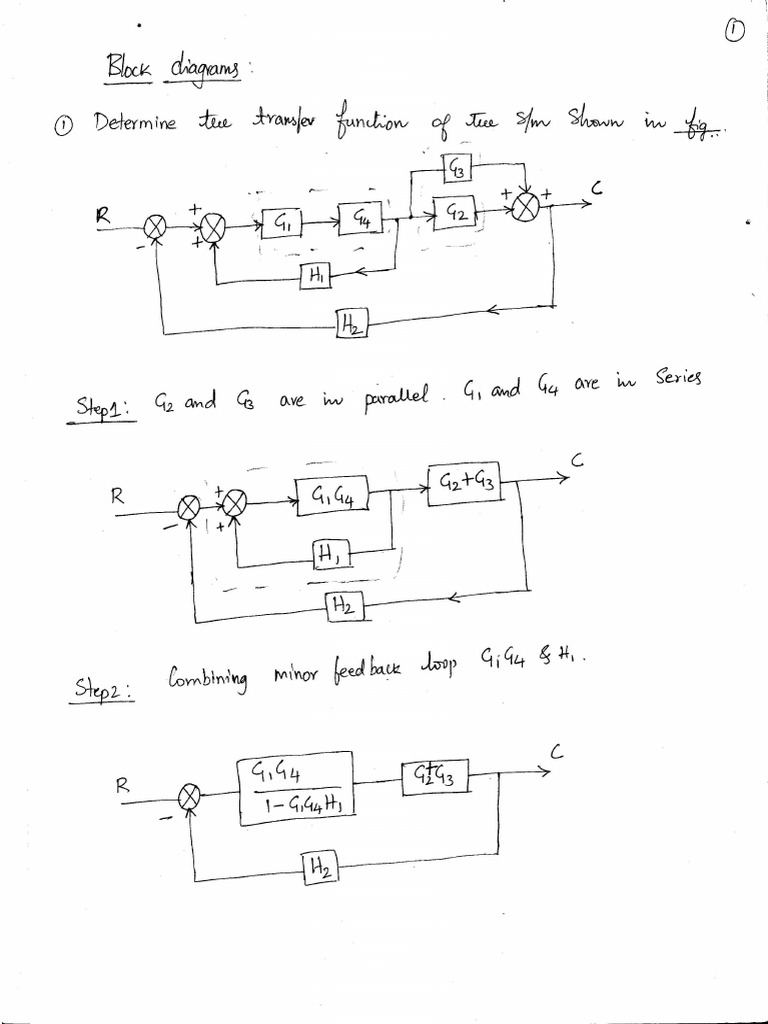 ①
Block diagrams:
① Determine the transfer function of the s/m shown in fig...
G3
R + G1 G4 G2 + + C
- +
H1
H2
Step1: G2 and G3 are in parallel. G1 and G4 are in Series
R + G1G4 G2+G3 C
- +
H1
H2
Step2: Combining minor feedback loop G1G4 & H1.
R G1G4 G2+G3 C
- 1-G1G4H1
H2